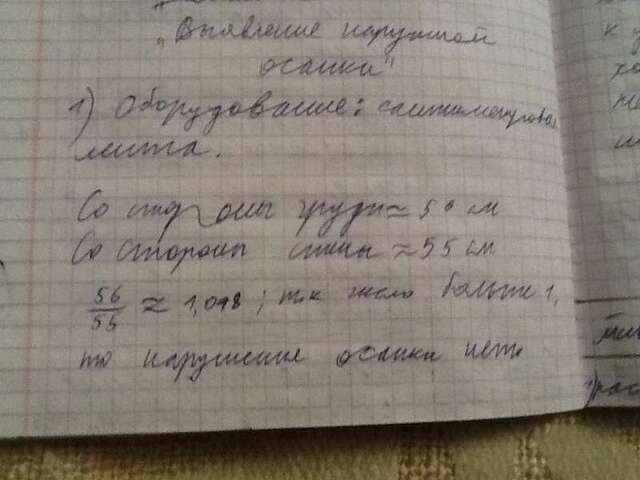 „Выявление наружной
осанки"
1) Оборудование: сантиметровая
лента.
Со стороны груди ≈ 56 см
Со стороны спины ≈ 55 см
56/55 ≈ 1,018; т.к число больше 1,
то нарушение осанки нет.
к